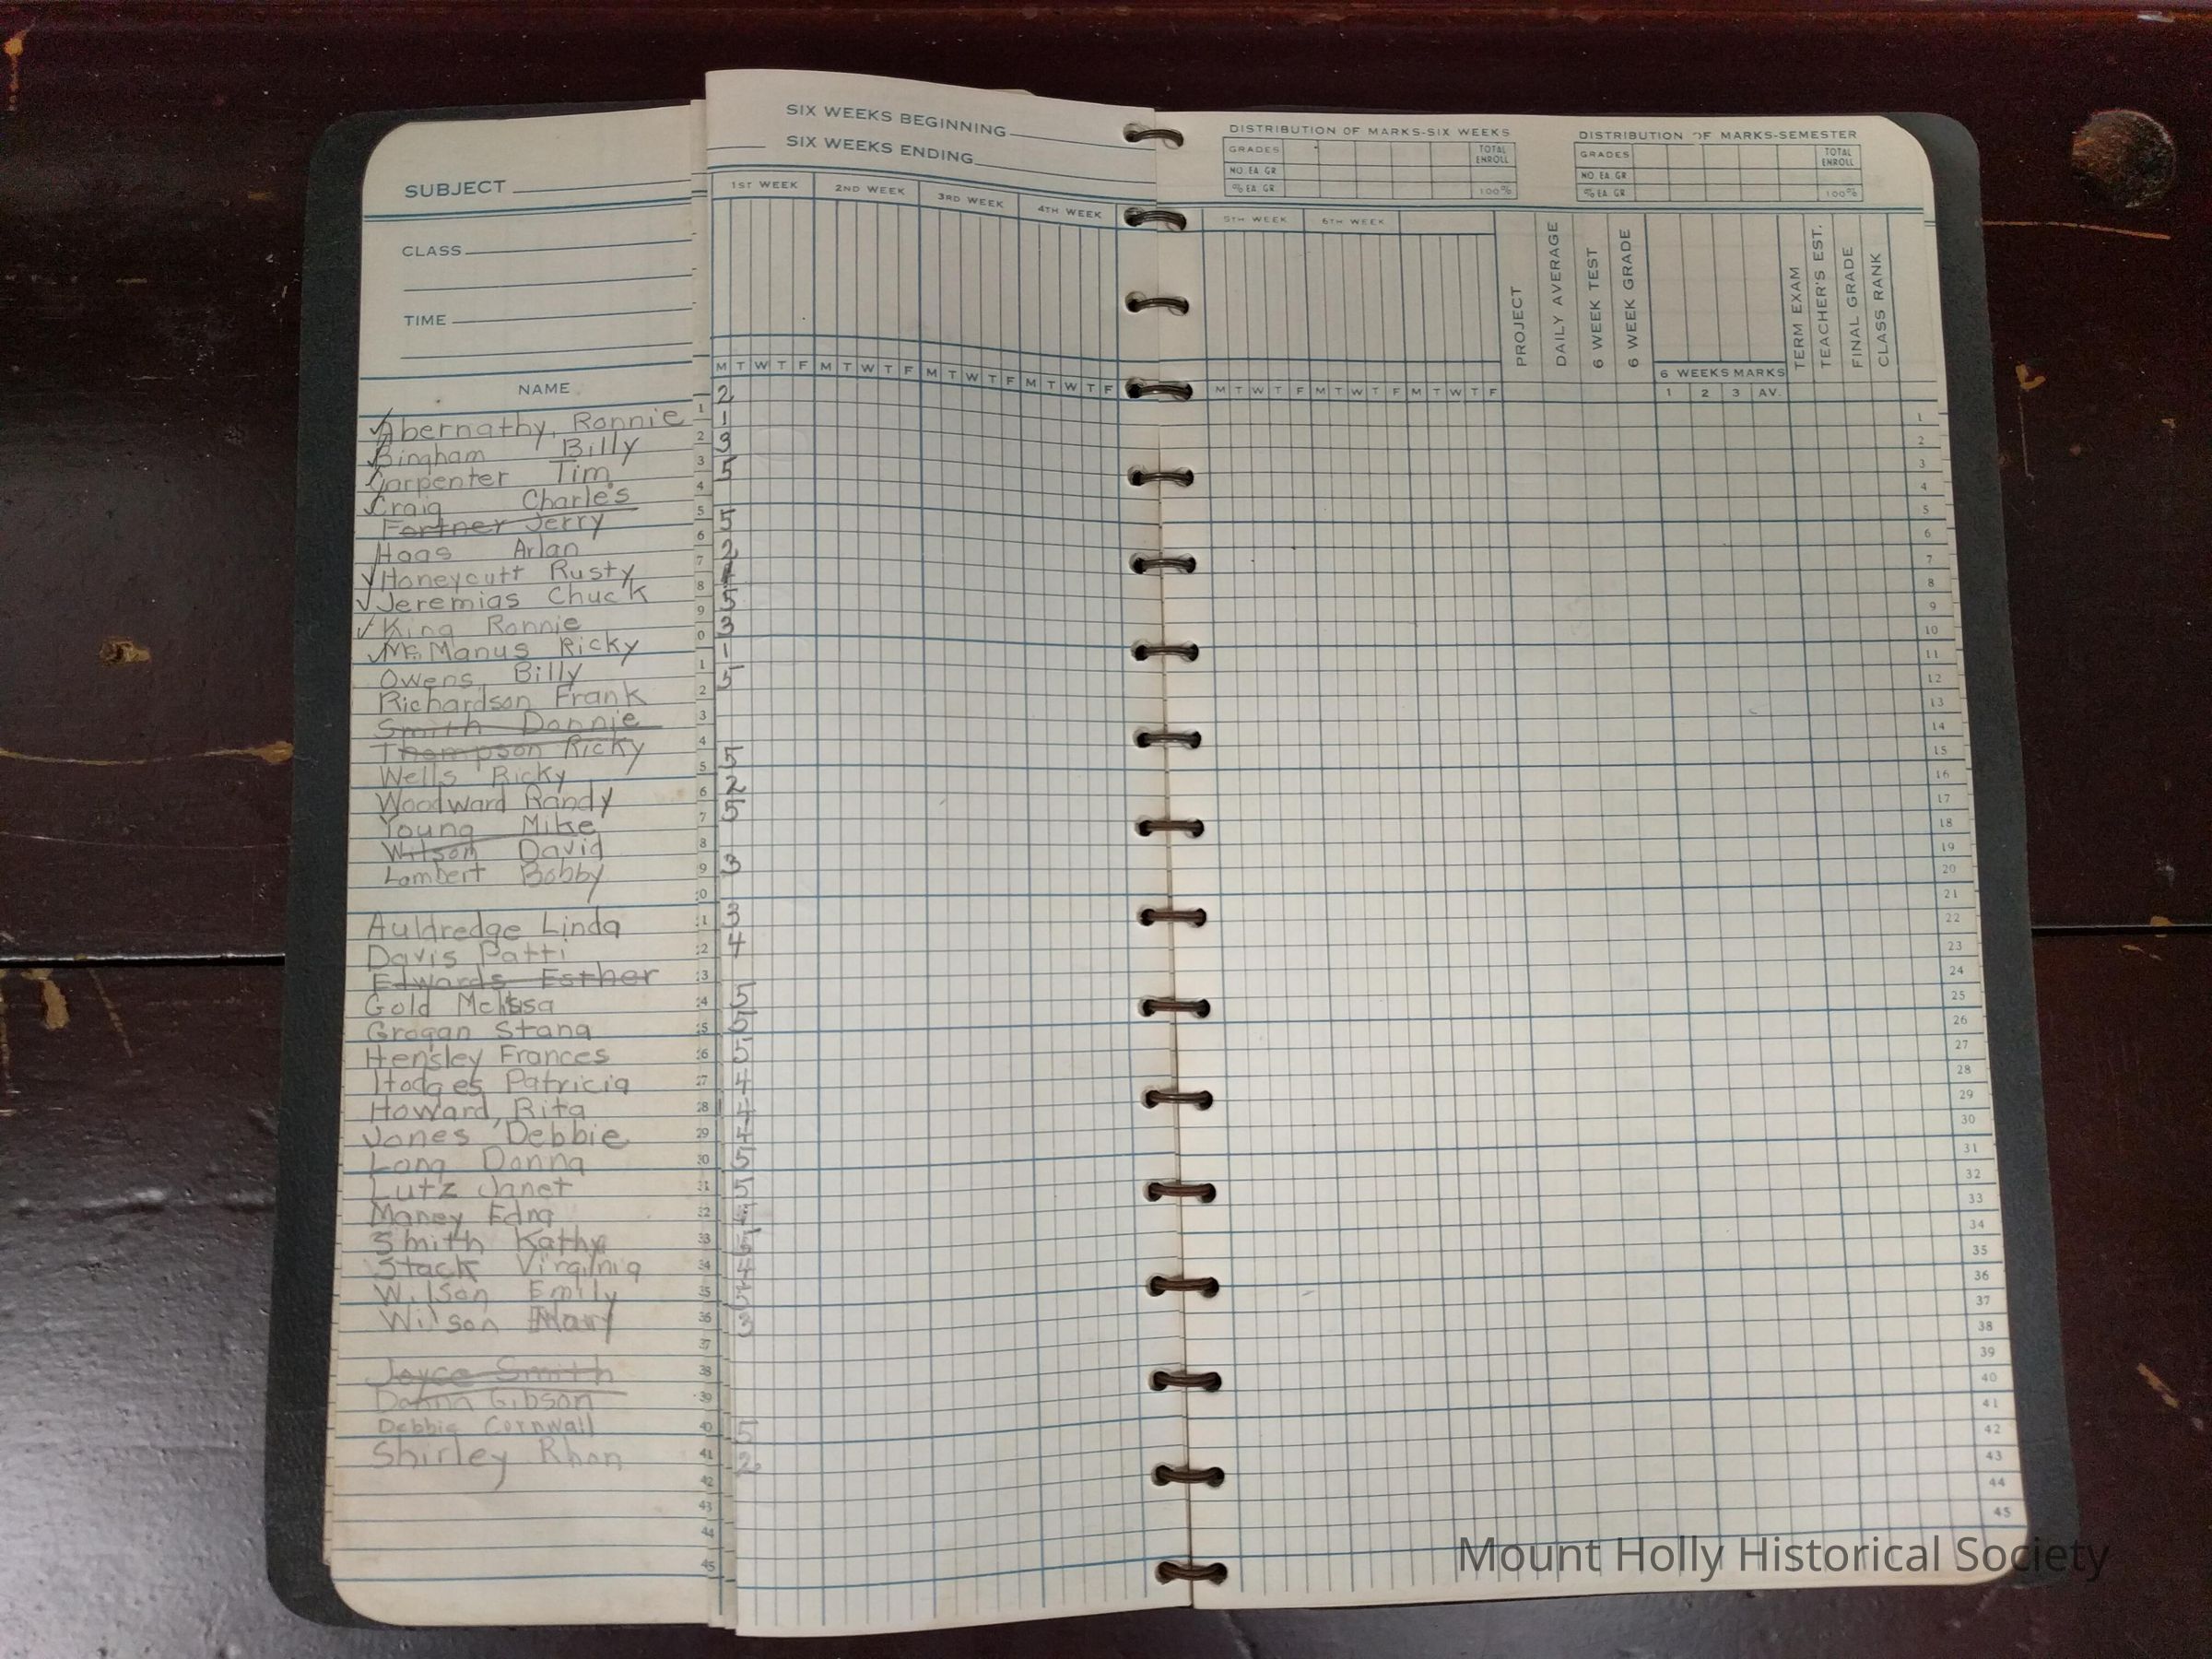 SUBJECT
CLASS
TIME
NAME
Abernathy, Ronnie
Bingham Billy
Carpenter Tim
Craig Charles
Fortner Jerry
Haas Arlan
Honeycutt Rusty
Jeremias Chuck
King Ronnie
McManus Ricky
Owens, Billy
Richardson Frank
Smith Donnie
Thompson Ricky
Wells Ricky
Woodward Randy
Young Mike
Wilson David
Lambert Bobby
Auldredge Linda
Davis Patti
Edwards Esther
Gold Melissa
Grogan Stana
Hensley Frances
Hodges Patricia
Howard, Rita
Jones Debbie
Long Donna
Lutz Janet
Maney Edna
Smith Kathy
Stack Virginia
Wilson Emily
Wilson Mary
Joyce Smith
Donna Gibson
Debbie Cornwall
Shirley
SIX WEEKS BEGINNING
SIX WEEKS ENDING
1ST WEEK 2ND WEEK 3RD WEEK 4TH WEEK
M T W T F M T W T F M T W T F M T W T F
2
1 1
2 3
3 5
4
5 5
6 2
7
8 5
9 3
0 1
1 5
2
3
4 5
5 2
6 5
7
8 3
9
0 3
1 4
2
3 5
4 5
5 5
6 4
27 4
28 4
29 5
30 5
31
32 5
33 4
34 5
35 3
36
37
38
39 5
40 2
41
42
43
44
45
DISTRIBUTION OF MARKS-SIX WEEKS
GRADES TOTAL ENROLL
NO. EA. GR
% EA. GR. 100%
DISTRIBUTION OF MARKS-SEMESTER
GRADES TOTAL ENROLL
NO. EA. GR
% EA. GR. 100%
5TH WEEK 6TH WEEK
PROJECT
DAILY AVERAGE
6 WEEK TEST
6 WEEK GRADE
6 WEEKS MARKS
TERM EXAM
TEACHER'S EST.
FINAL GRADE
CLASS RANK
M T W T F M T W T F M T W T F 1 2 3 AV.
1
2
3
4
5
6
7
8
9
10
11
12
13
14
15
16
17
18
19
20
21
22
23
24
25
26
27
28
29
30
31
32
33
34
35
36
37
38
39
40
41
42
43
44
45
Mount Holly Historical Society